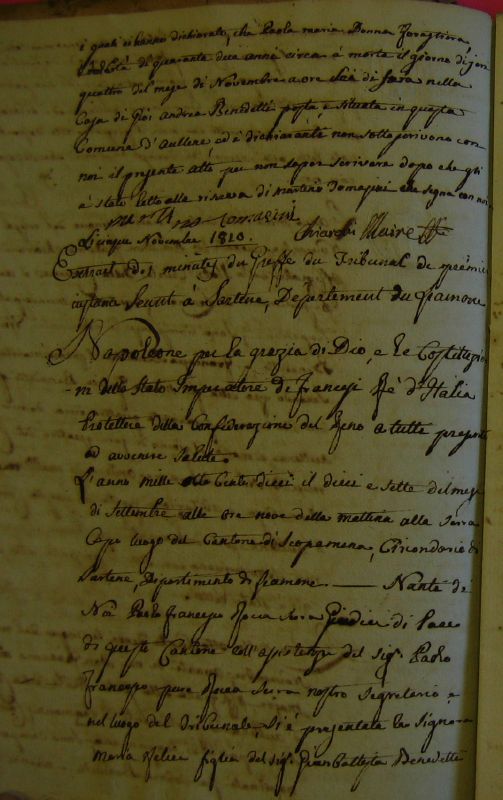 i quali ci hanno dichiarato, che Paola maria Donna forastiera
d'età di quaranta due anni circa è morta il giorno di jeri
quattro del mese di Novembre a ore sei di sera nella
Casa di Gio: Andrea Benedetti posta e situata in questa
Comune d'Aullene ed è dichiarante non sottoscrivono con
noi il presente atto per non saper scrivere dopo che gli
è stato letto alla riserva di Martino Tomasini che segna con noi
Martino Tomasini
Li cinque Novembre 1810. Maire
Extrait des minutes du Greffe du Tribunal de première
instance Seant à Sartene, Departement du Liamone
Napoleone per la grazia di Dio, e le Costituzio
-ni dello Stato Imperatore de francesi Rè d'Italia
Protettore della Confederazione del Reno a tutti presenti
ed avvenire Salute.
L'anno mille otto cento dieci il dieci e sette del mese
di Settembre alle ore nove della mattina alla Serra
Capo luogo del Cantone di Scopamena, Circondario di
Sartene, Dipartimento di Liamone — Nanté di
Noi Paolo francesco Rocca Serra Giudice di Pace
di questo Cantone coll'assistenza del sig.r Paolo
francesco pure Rocca Serra nostro Segretario e
nel luogo del Tribunale, si è presentata la Signora
Maria Felice figlia del sig.r Gian Battista Benedetti